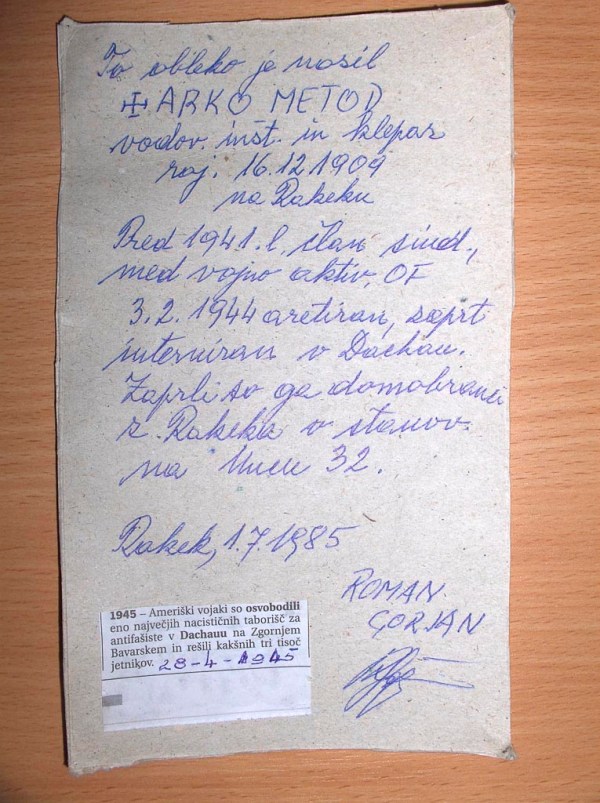 To obleko je nosil
✠ ARKO METOD
vodov. inšt. in klepar
roj. 16.12 1909
na Rakeku
Pred 1941. l. član sind.,
med vojno aktiv. OF
3.2. 1944 aretiran, zaprt
interniran v Dachau.
Zaprli so ga domobranci
z Rakeka v stanov.
na Uncu 32.
Rakek, 1.7.1985
ROMAN
GORJAN
1945 – Ameriški vojaki so osvobodili
eno največjih nacističnih taborišč za
antifašiste v Dachauu na Zgornjem
Bavarskem in rešili kakšnih tri tisoč
jetnikov. 28-4-1945